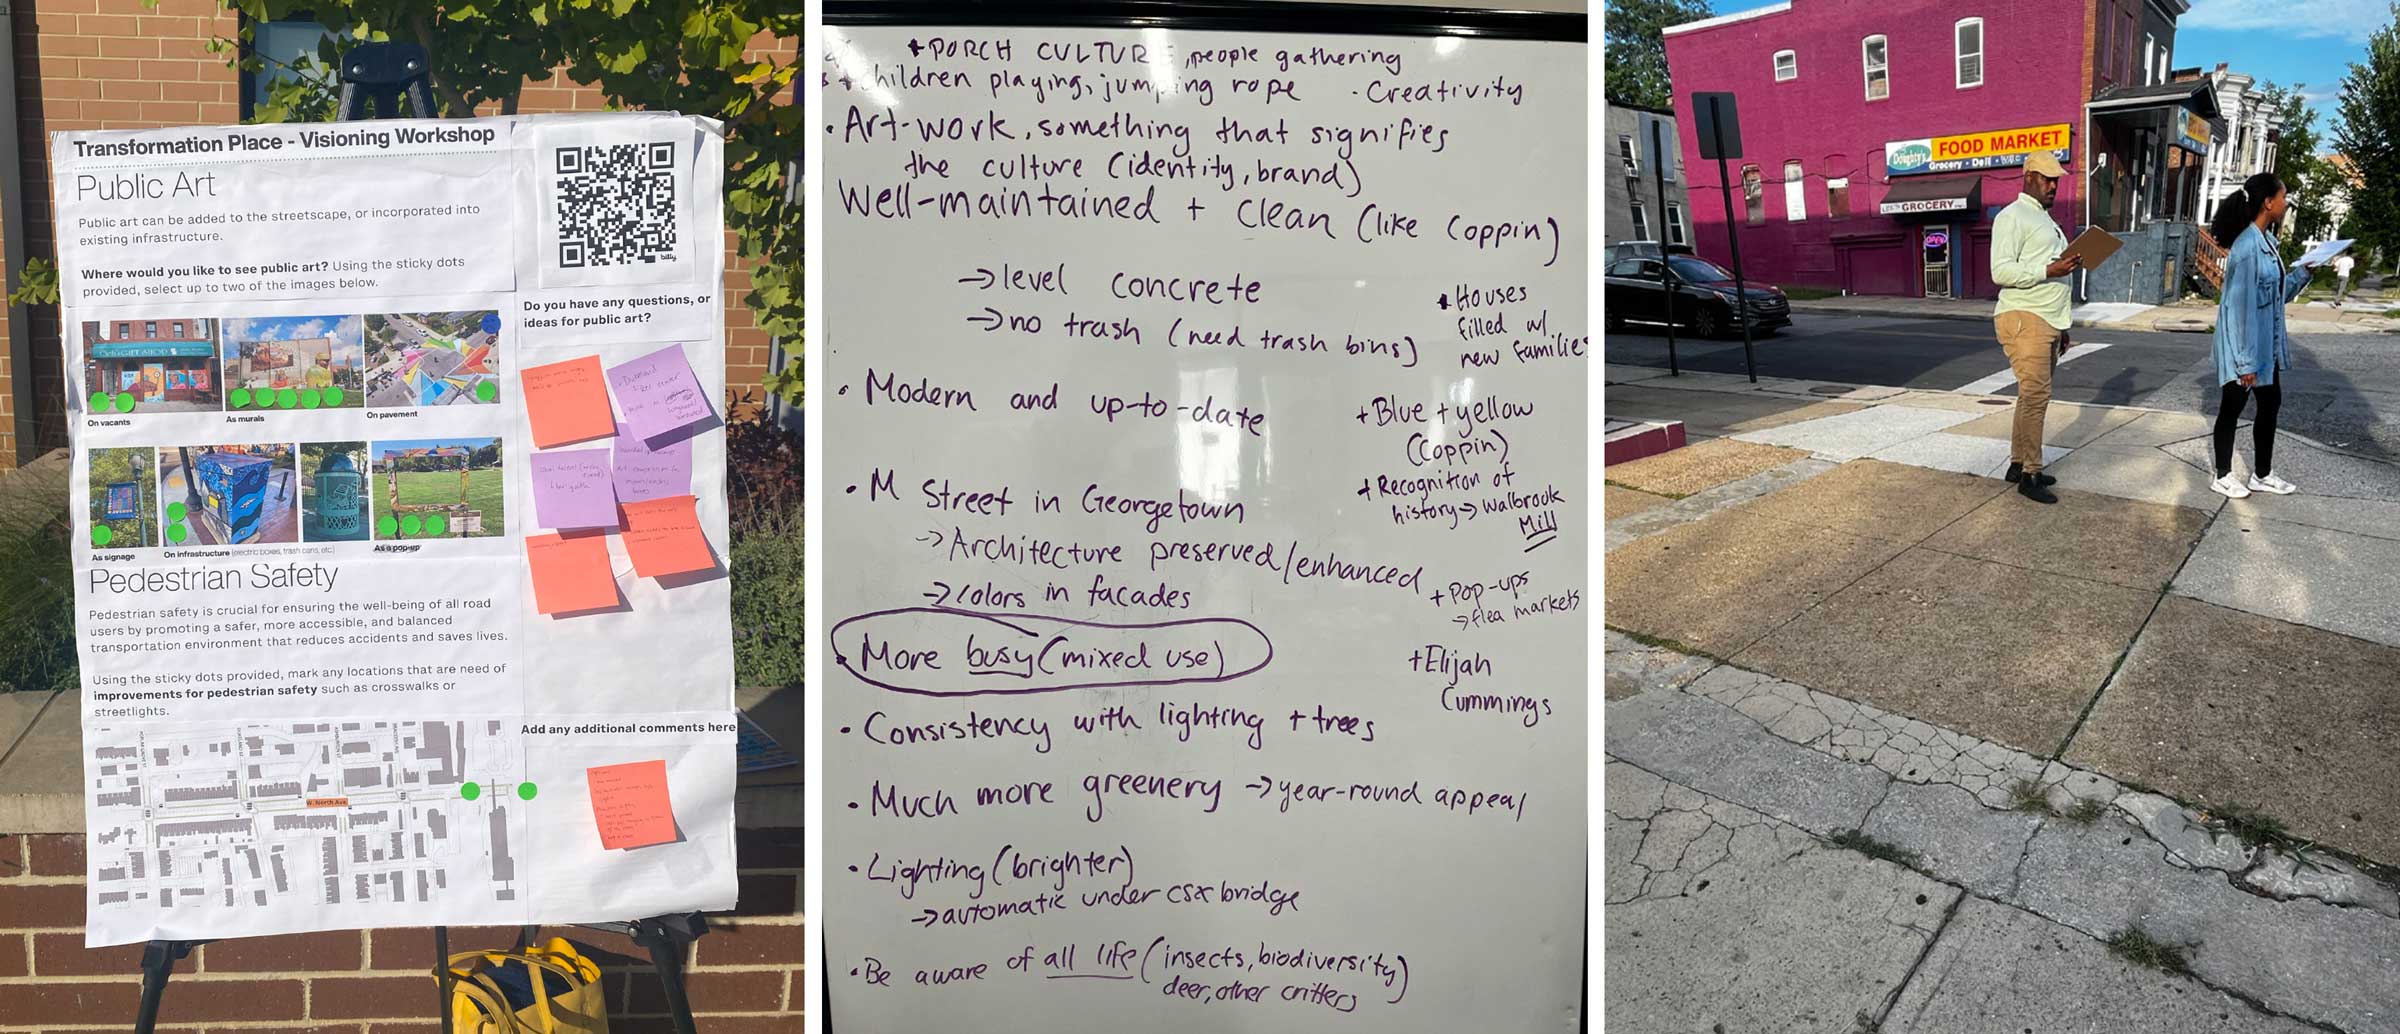 Transformation Place - Visioning Workshop
Public Art
Public art can be added to the streetscape, or incorporated into
existing infrastructure.
Where would you like to see public art? Using the sticky dots
provided, select up to two of the images below.
On vacants
As murals
On pavement
As signage
On infrastructure (electric boxes, trash cans, etc)
As a pop-up
bitly
Do you have any questions, or
ideas for public art?
Pedestrian Safety
Pedestrian safety is crucial for ensuring the well-being of all road
users by promoting a safer, more accessible, and balanced
transportation environment that reduces accidents and saves lives.
Using the sticky dots provided, mark any locations that are need of
improvements for pedestrian safety such as crosswalks or
streetlights.
W. North Ave
Add any additional comments here
+ PORCH CULTURE, people gathering
+ children playing, jumping rope · Creativity
· Art-work, something that signifies
the culture (identity, brand)
Well-maintained + clean (like Coppin)
→ level concrete
→ no trash (need trash bins)
· Modern and up-to-date
· M Street in Georgetown
→ Architecture preserved/enhanced
→ colors in facades
· More busy (mixed use)
· Consistency with lighting + trees
· Much more greenery → year-round appeal
· Lighting (brighter)
→ automatic under csx bridge
· Be aware of all life (insects, biodiversity)
deer, other critters
+ Houses
filled w/
new families
+ Blue + yellow
(Coppin)
+ Recognition of
history → Walbrook
Mill
+ Pop-ups
→ flea markets
+ Elijah
Cummings
Doughty's
FOOD MARKET
Grocery · Deli
GROCERY
OPEN